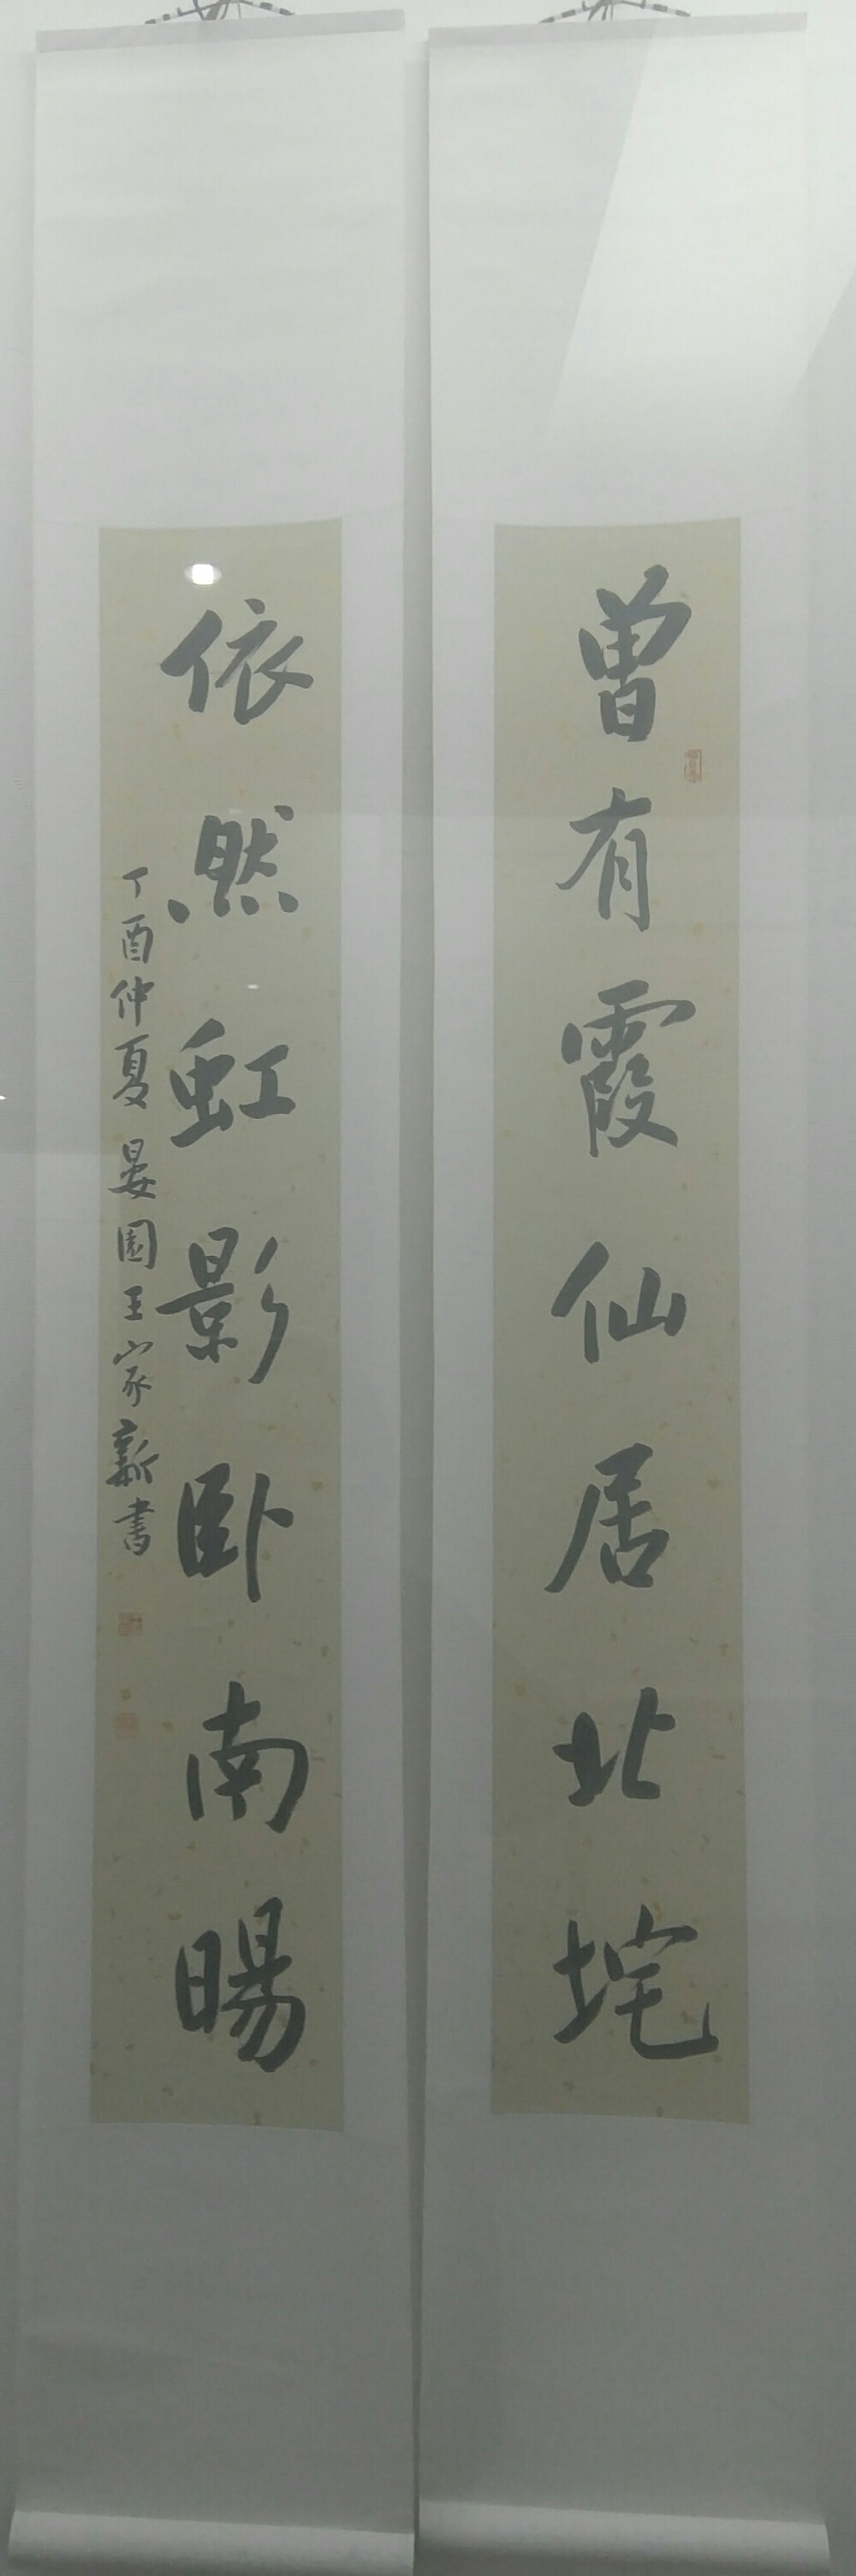 曾有霞仙居北垞
依然虹影卧南暘
丁酉仲夏晏園王家新書